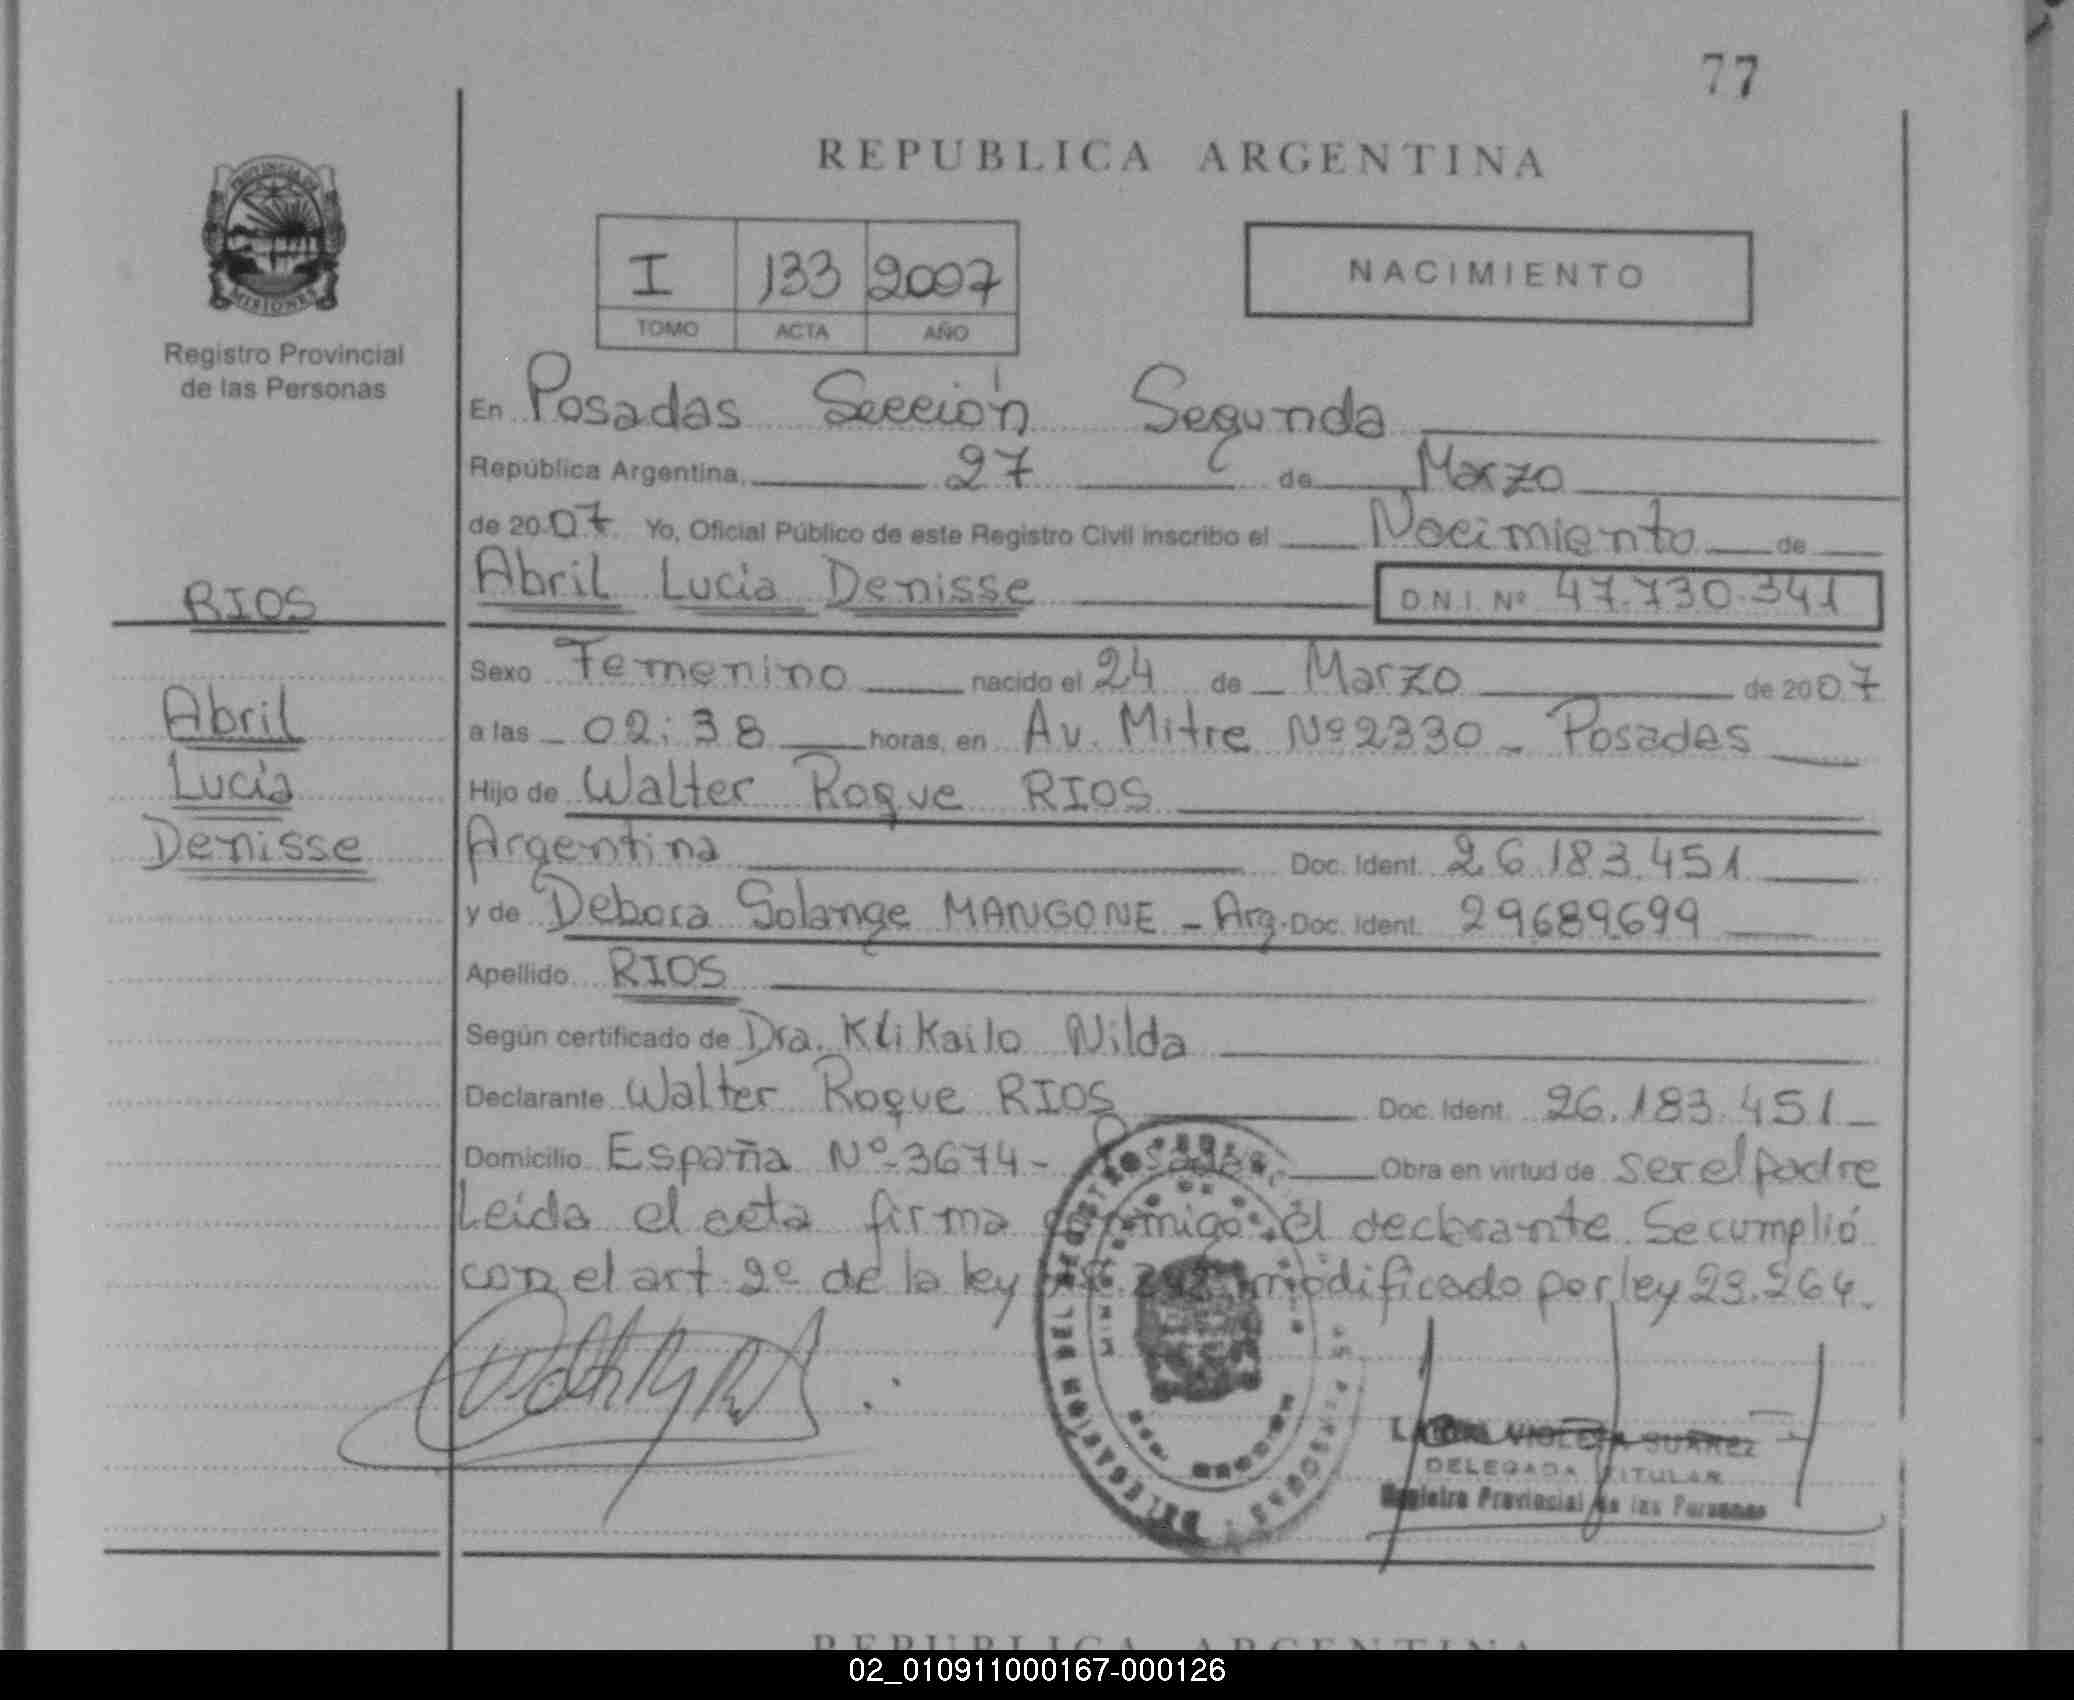 77
REPUBLICA ARGENTINA
PROVINCIA DE
MISIONES
Registro Provincial
de las Personas
I 133 2007
TOMO ACTA AÑO
NACIMIENTO
En Posadas Sección Segunda
República Argentina, 27 de Marzo
de 2007. Yo, Oficial Público de este Registro Civil inscribo el Nacimiento de
Abril Lucía Denisse D.N.I. Nº 47.730.341
RIOS
Abril
Lucía
Denisse
Sexo Femenino nacido el 24 de Marzo de 2007
a las 02:38 horas, en Av. Mitre Nº 2330 - Posadas
Hijo de Walter Roque RIOS
Argentina Doc. Ident. 26.183.451
y de Debora Solange MANGONE - Arg. Doc. Ident. 29689699
Apellido RIOS
Según certificado de Dra. Klikailo Nilda
Declarante Walter Roque RIOS Doc. Ident. 26.183.451
Domicilio España Nº 3674 - Posadas Obra en virtud de ser el padre
Leída el acta firma conmigo el declarante. Se cumplió
con el art 2º de la ley modificado por ley 23.264.
VIOLETA SUAREZ
DELEGADA TITULAR
Registro Provincial de las Personas
REPUBLICA ARGENTINA
02_010911000167-000126